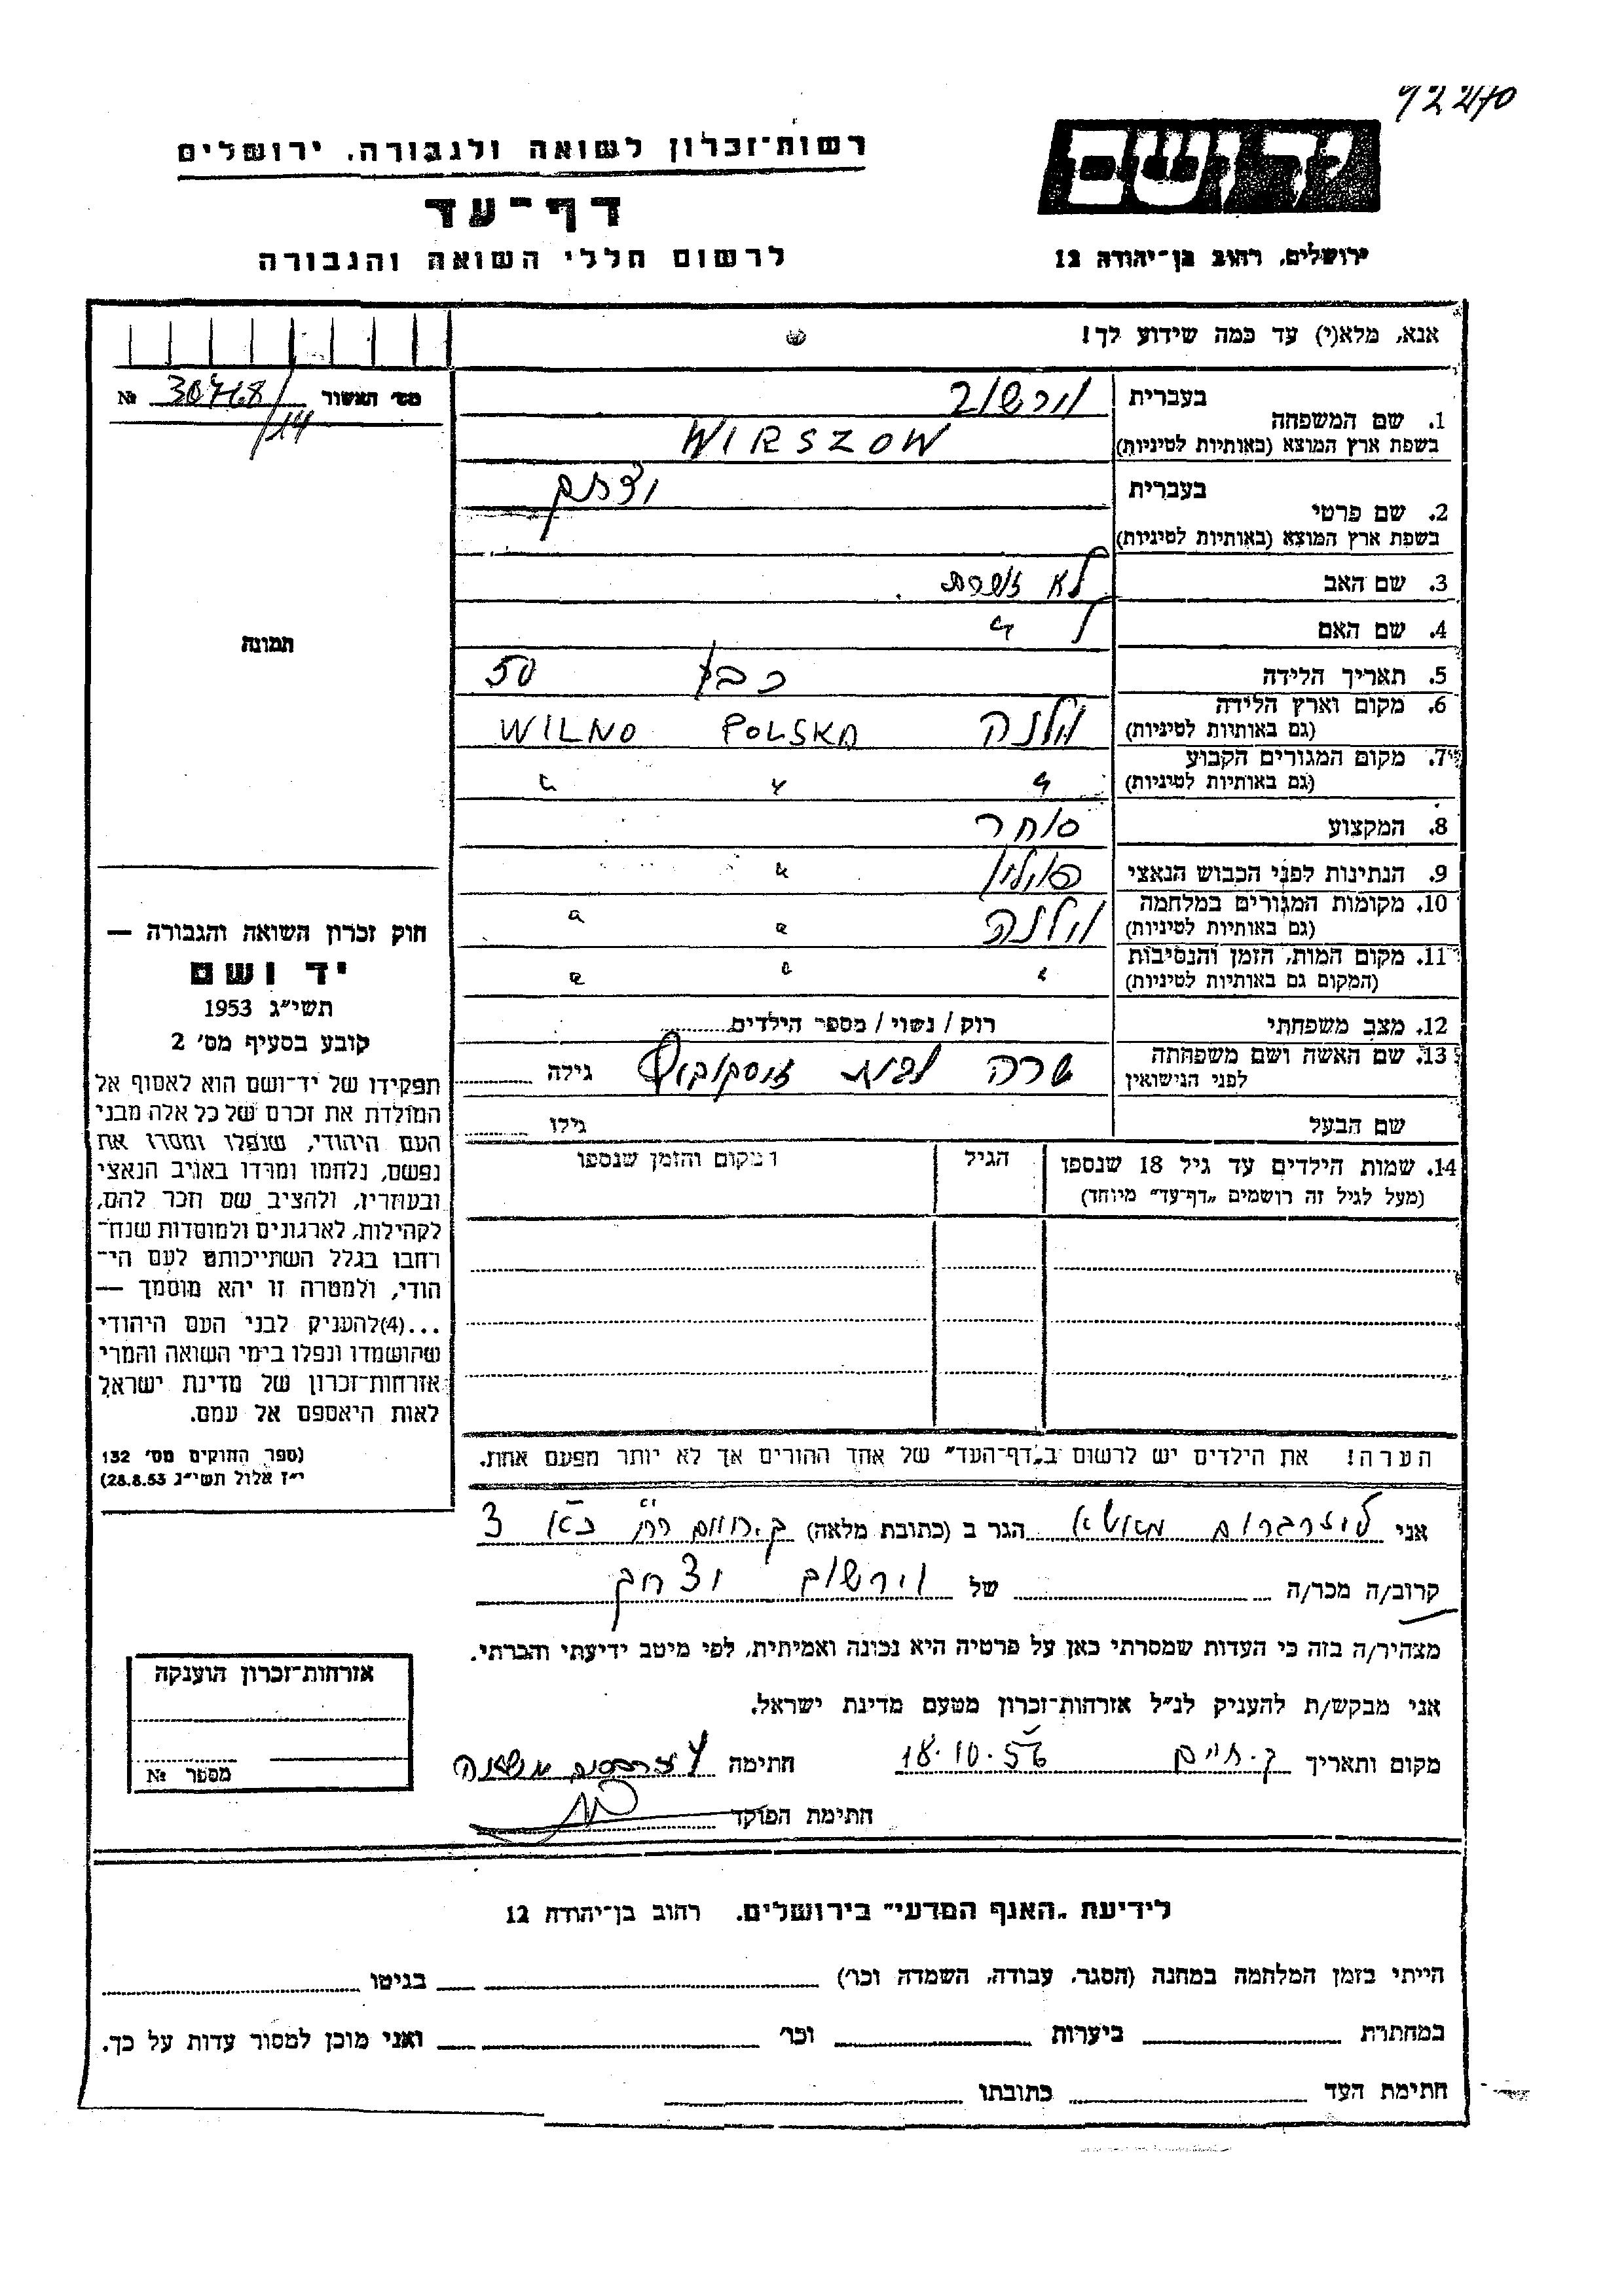 92270
רשות־זכרון לשואה ולגבורה, ירושלים
יד ושם
דף־עד
לרשום חללי השואה והגבורה
ירושלים, רחוב בן־יהודה 12
אנא, מלא(י) עד כמה שידוע לך!
מס׳ האשור 30768/14 №
1. שם המשפחה
בעברית וירשוב
בשפת ארץ המוצא (באותיות לטיניות) WIRSZOW
2. שם פרטי
בעברית יצחק
בשפת ארץ המוצא (באותיות לטיניות)
3. שם האב לא
4. שם האם ל
5. תאריך הלידה כבן 50
6. מקום וארץ הלידה
(גם באותיות לטיניות) וילנה POLSKA WILNO
7. מקום המגורים הקבוע
(גם באותיות לטיניות) " " "
8. המקצוע סוחר
9. הנתינות לפני הכבוש הנאצי פולין "
10. מקומות המגורים במלחמה
(גם באותיות לטיניות) וילנה " "
11. מקום המות, הזמן והנסיבות
(המקום גם באותיות לטיניות) " " "
12. מצב משפחתי רוק / נשוי / מספר הילדים
13. שם האשה ושם משפחתה
לפני הנישואין שרה לבית גילה
שם הבעל גילו
14. שמות הילדים עד גיל 18 שנספו
(מעל לגיל זה רושמים „דף־עד״ מיוחד)
הגיל
מקום והזמן שנספו
הערה! את הילדים יש לרשום ב„דף־העד״ של אחד ההורים אך לא יותר מפעם אחת.
תמונה
חוק זכרון השואה והגבורה —
יד ושם
תשי״ג 1953
קובע בסעיף מס׳ 2
תפקידו של יד־ושם הוא לאסוף אל
המולדת את זכרם של כל אלה מבני
העם היהודי, שנפלו ומסרו את
נפשם, נלחמו ומרדו באויב הנאצי
ובעוזריו, ולהציב שם וזכר להם,
לקהילות, לארגונים ולמוסדות שנח־
רבו בגלל השתייכותם לעם הי־
הודי, ולמטרה זו יהא מוסמך —
...(4)להעניק לבני העם היהודי
שהושמדו ונפלו בימי השואה והמרי
אזרחות־זכרון של מדינת ישראל
לאות היאספם אל עמם.
(ספר החוקים מס׳ 132
י״ז אלול תשי״ג 28.8.53)
אני הגר ב (כתובת מלאה) ק. חיים 3
קרוב/ה מכר/ה של וירשוב יצחק
מצהיר/ה בזה כי העדות שמסרתי כאן על פרטיה היא נכונה ואמיתית, לפי מיטב ידיעתי והכרתי.
אני מבקש/ת להעניק לנ״ל אזרחות־זכרון מטעם מדינת ישראל.
מקום ותאריך ק. חיים 18.10.56 חתימה
חתימת הפוקד
אזרחות־זכרון הוענקה
מספר №
לידיעת „האגף המדעי״ בירושלים, רחוב בן־יהודה 12
הייתי בזמן המלחמה במחנה (הסגר, עבודה, השמדה וכו׳) בגיטו
במחתרת ביערות וכו׳ ואני מוכן למסור עדות על כך.
חתימת העד כתובתו